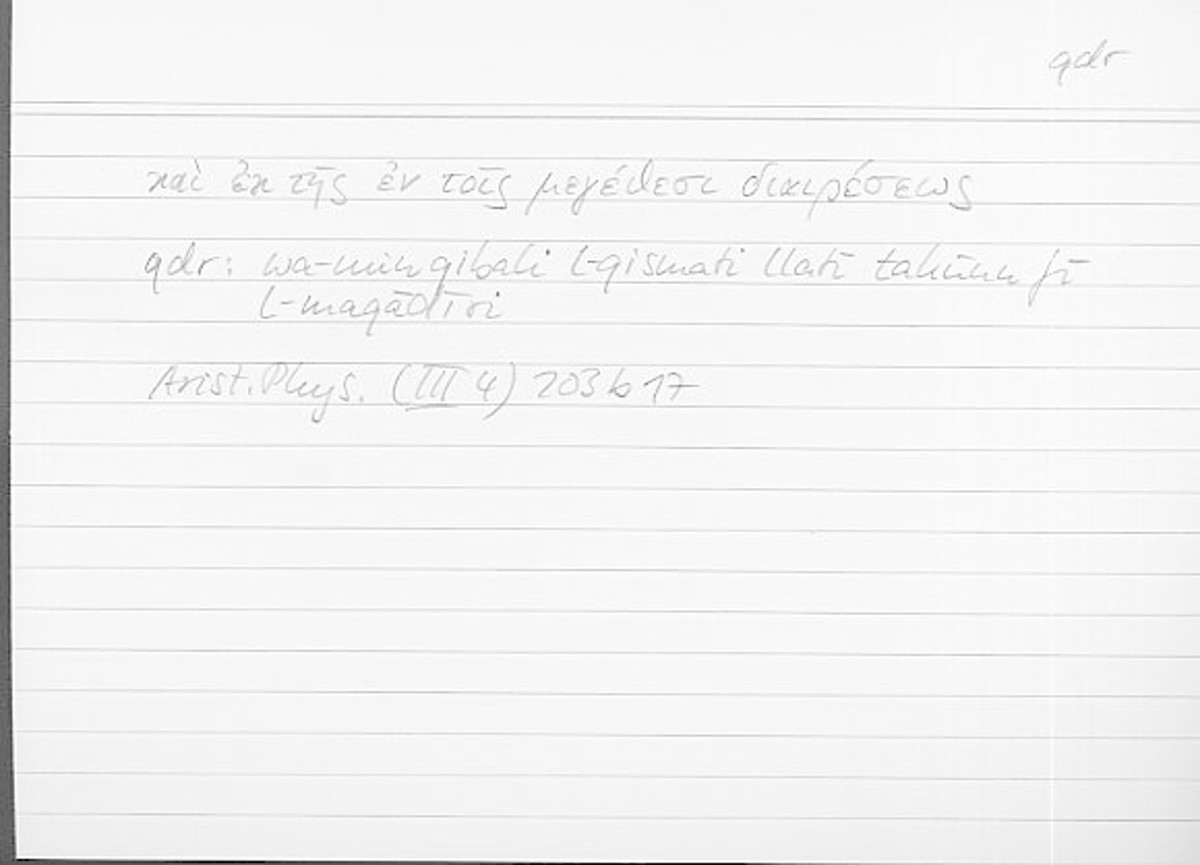 qdr
καὶ ἐκ τῆς ἐν τοῖς μεγέθεσι διαιρέσεως
qdr: wa-min qibali l-qismati llatī takūnu fī
l-maqādīri
Arist. Phys. (III 4) 203 b 17